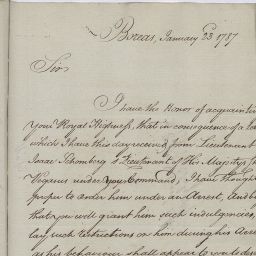 Boreas, January 23 1787
Sir
I have the Honor of acquainting
your Royal Highness, that in consequence of a
which I have this day received from Lieutenant
Isaac Schomberg of His Majestys
Pegasus under your Command, I have thought
proper to order him under an Arrest, And
that you will grant him such indulgencies,
lay such restrictions on him during his
as his behaviour shall appear to